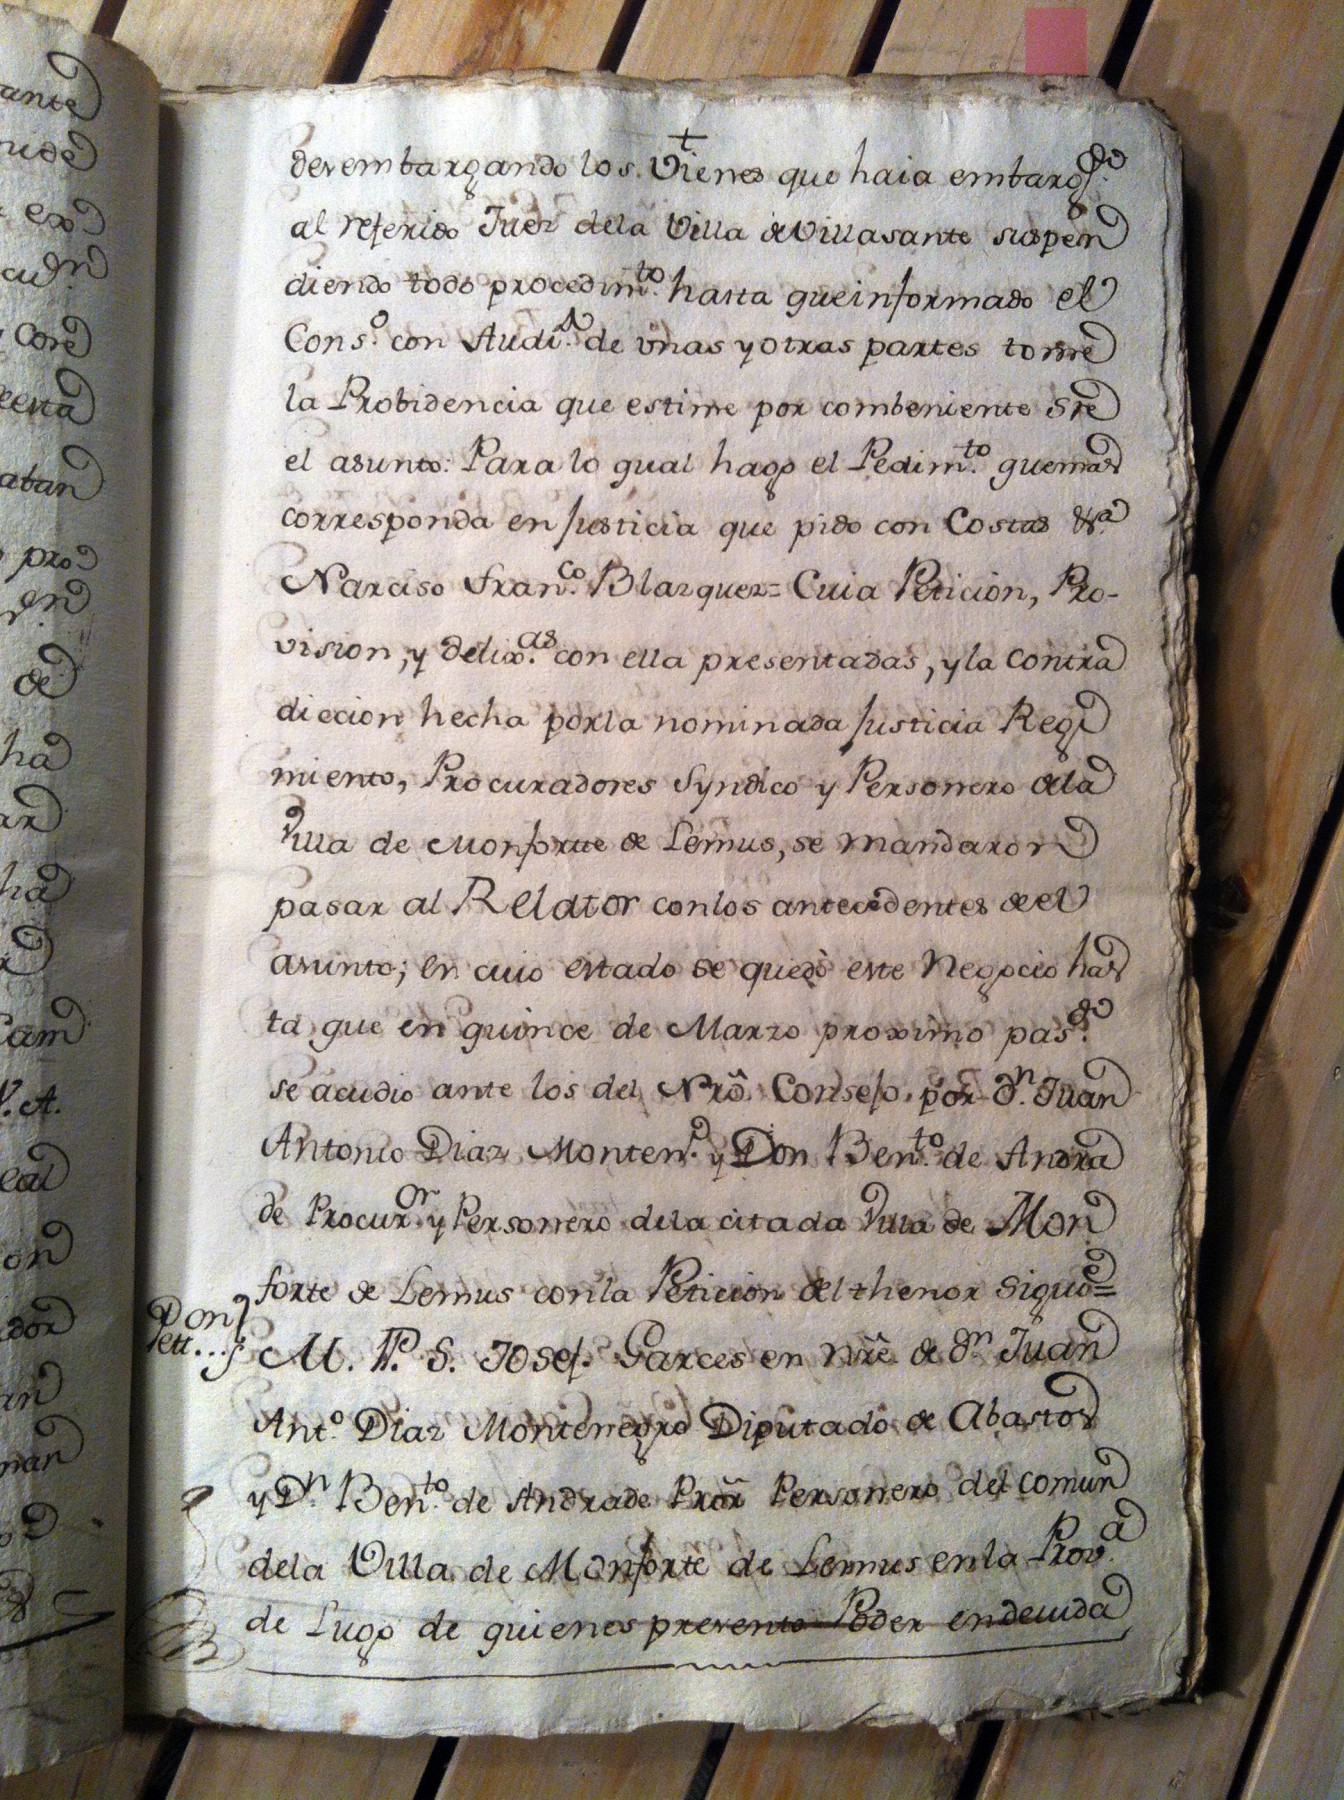 ante
+
desembargando los Vienes que haia embarg.do
al referido Juez dela Villa de Villasante suspen
diendo todo procedim.to hasta que informado el
Cons.o con Audi.a de vnas y otras partes tome
la Probidencia que estime por combeniente sre
el asunto: Para lo qual hago el Pedim.to que mas
corresponda en Justicia que pido con Costas &.a
Narciso Fran.co Blazquez= Cuia Peticion, Pro-
vision, y delix.as con ella presentadas, y la contra
diccion hecha por la nominada Justicia Regi
miento, Procuradores Syndico y Personero dela
Villa de Monforte de Lemus, se mandaron
pasar al Relator con los antecedentes de el
asunto; en cuio estado se quedò este Negocio has
ta que en quince de Marzo proximo pas.do
se acudio ante los del Nrõ Consejo por d.n Juan
Antonio Diaz Monten.o y Don Ben.to de Andra
de Procur.or y Personero dela citada Villa de Mon
forte de Lemus con la Peticion del thenor siguie=
Pett...
M. P. S. Josef Garces en Nrẽ de d.n Juan
Ant.o Diaz Montenegro Diputado de Abastos
y D.n Ben.to de Andrade Prõr Personero del comun
dela Villa de Monforte de Lemus en la Prov.a
de Lugo de quienes presento Poder en deuida